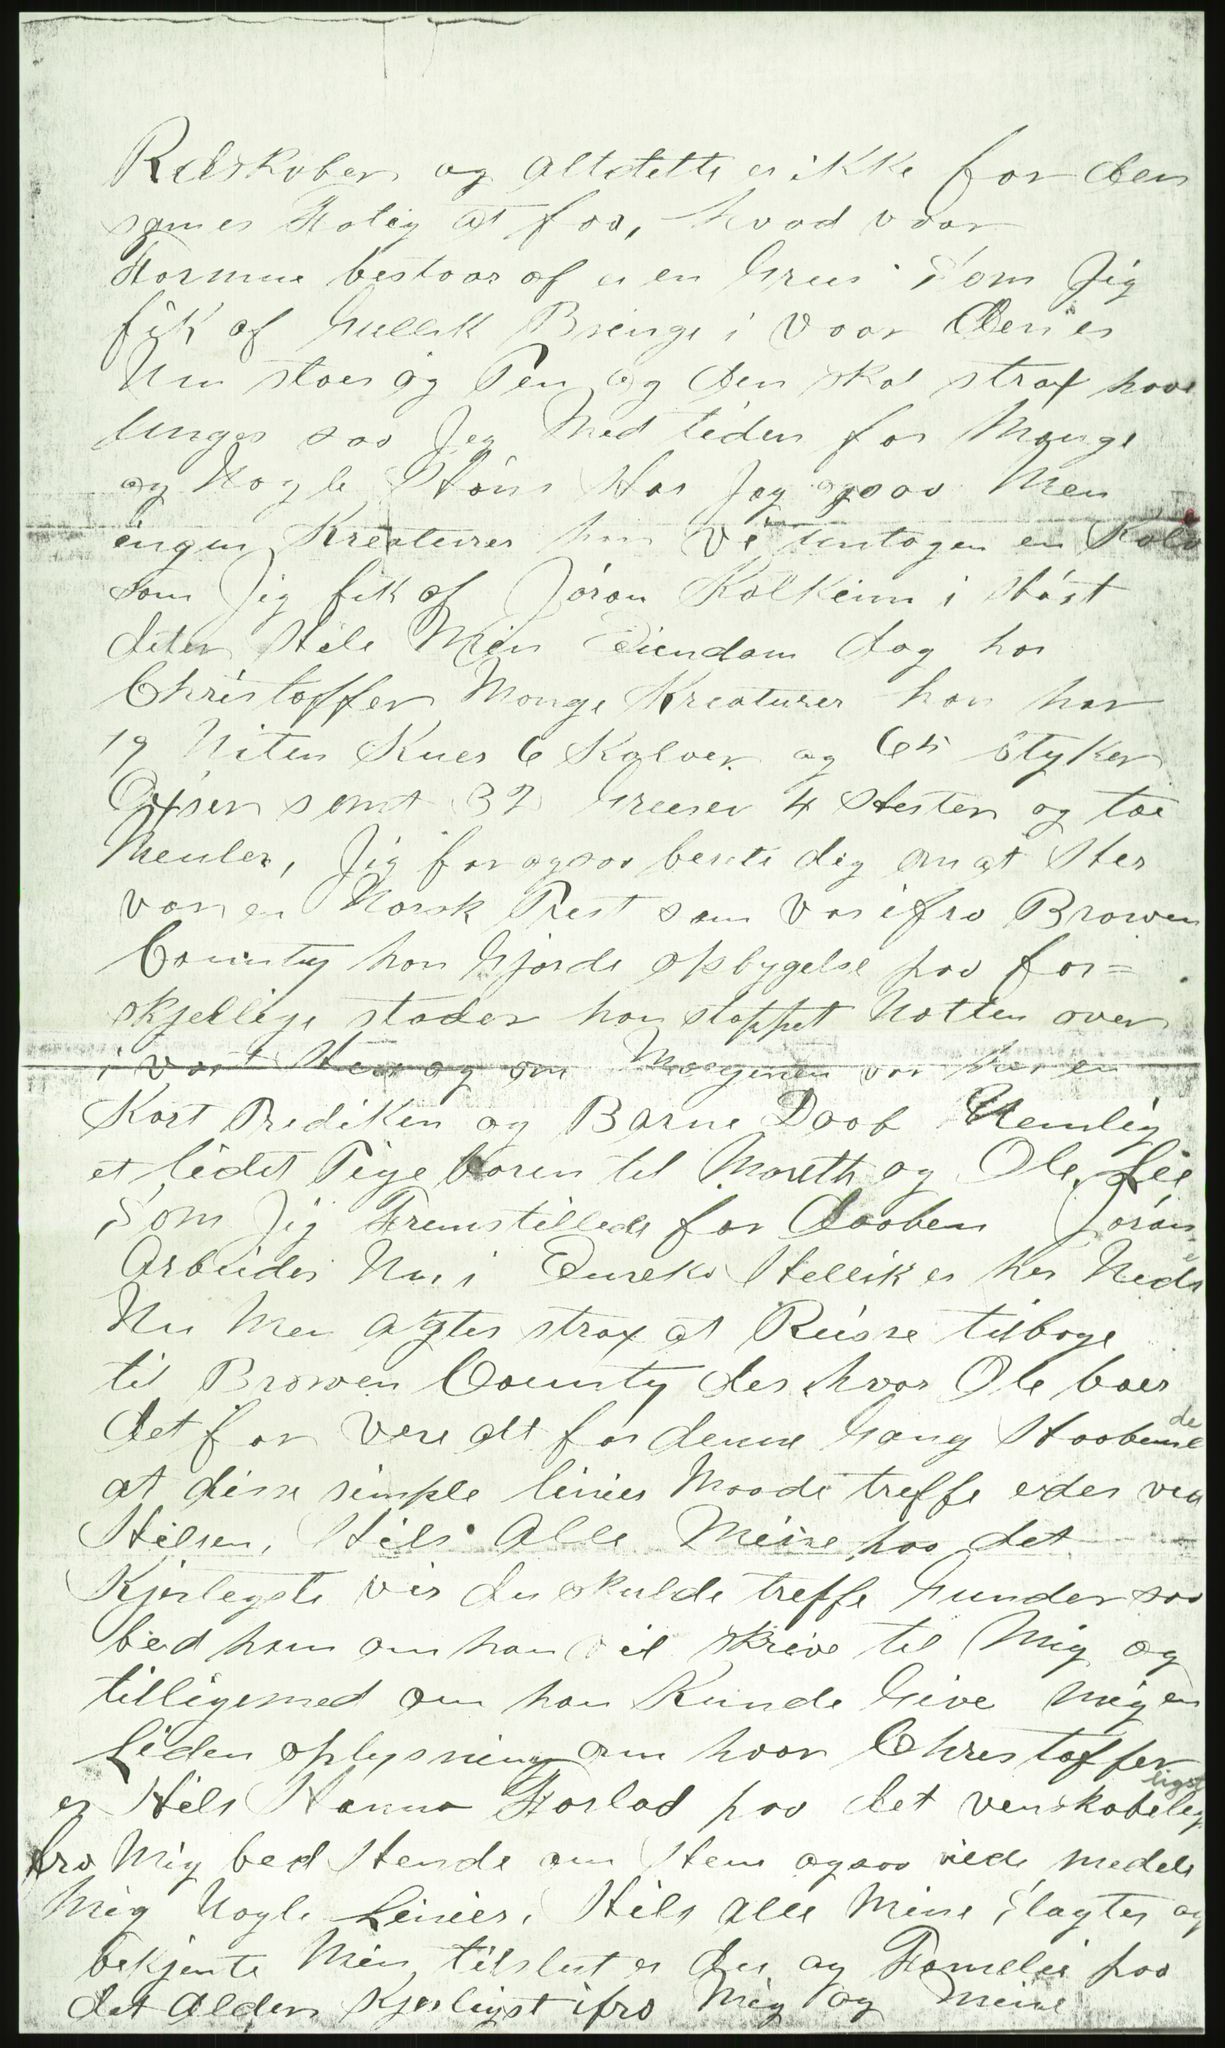 Redskaber og alt dette er ikke for den
samer Folig at faa, hvad vaar
Formue bestaar af er en Gries som Jig
fik af Gullik Bringe i Vaar den er
Nu stoer og Pen og den skal strax have
Unger saa Jeg Med tiden for Mange
og Nogle Høns Har Jeg ogsaa Men
ingen Kreaturer har Vi untagen en Kalv
som Jig fik af Jøran Kolkeinn i Høst
deter Hele Min Eiendom dog har
Christoffer Mange Kreaturer han har
19 Niten Kuer 6 Kalver og 65 Styker
Oxser samt 32 Grieser 4 Hester og toe
Meuler, Jig for ogsaa berete dig om at Her
var en Norsk Prest som Var ifra Browen
County han Gjorde opbygelse paa for=
skjellige stader han stoppet Natten over
i vort Hus og om Morgenen var her en
Kort Prediken og Barne Daab Nemlig
et lidet Pige baren til Mareth og Ole Lie
Som Jig Fremstillede for Daaben Jøran
Arbeider Nu i Eureka Hellik er her Nede
Nu Men agter strax at Reisse tilbage
til Browen County der hvor Ole boer
det for Vere alt for denne Gang Haabende
at disse simple linier Maade treffe eder vea
Hilsen, Hils Alle Meine paa det
Kjerlegste vis du skulde treffe Gunder saa
bed ham om han vil skrive til Mig og
tilligemed om han Kunde Give Mig en
Liden oplysning om hvor Christoffer
er Hils Hanna Forlad paa det venskabeligst
fra Mig bed Hende om Hun ogsaa vilde medele
Mig Nogle Linier, Hils alle Mine Slagter og
bekjente Men tilslut er du og Familie paa
det alder Kjerligst ifra Mig og Meine